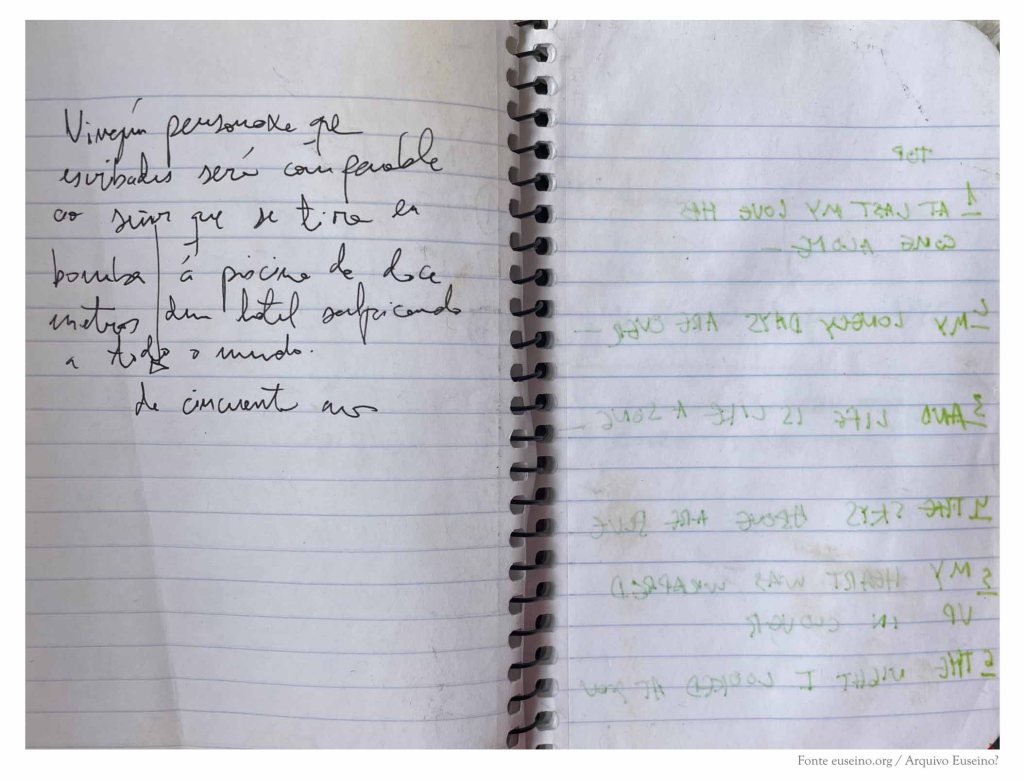 Ningún personaxe que
escribades será comparable
ao señor que se tira en
bomba á piscina de doce
metros dun hotel salpicando
a todo o mundo.
de cincuenta anos
TOP
1 AT LAST MY LOVE HAS
COME ALONG —
2 MY LONELY DAYS ARE OVER —
3 AND LIFE IS LIKE A SONG —
4 THE SKYS ABOVE ARE BLUE
5 MY HEART WAS WRAPPED
UP IN CLOVER
6 THE NIGHT I LOOKED AT you
Fonte euseino.org / Arquivo Euseino?